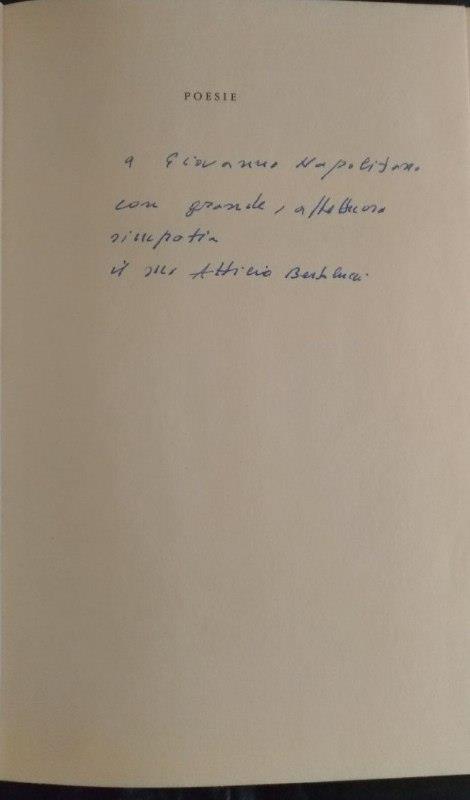 POESIE
a Giovanni Napolitano
con grande, affettuosa
simpatia
il suo Attilio Bertolucci